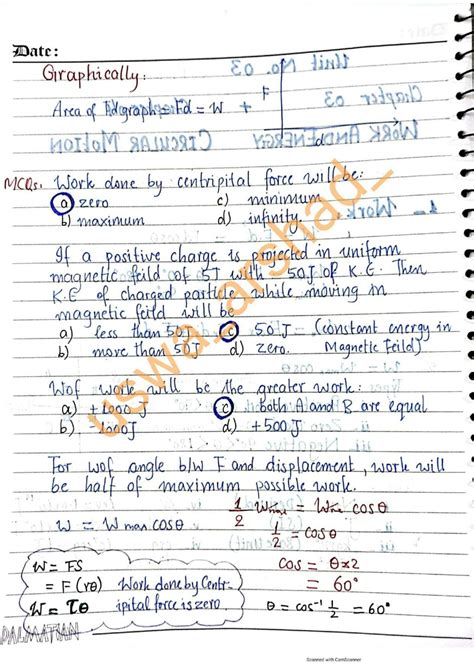 Date:
Graphically:
Area of Fdgraph = Fd = W
F
d
MCQs. Work done by centripital force will be:
a) zero c) minimum
b) maximum d) infinity.
If a positive charge is projected in uniform
magnetic feild of 5T with 50J of K.E. Then
K.E of charged particle while moving in
magnetic feild will be
a) less than 50J c) 50J - (constant energy in
b) more than 50J d) zero. Magnetic Feild)
Wof work will be the greater work:
a) +1000J c) both A and B are equal
b) -1000J d) +500J
For wof angle b/w F and displacement, work will
be half of maximum possible work.
W = Wmax cosθ
1/2 Wmax = Wmax cosθ
1/2 = cosθ
cos = θx2
= 60°
θ = cos⁻¹ 1/2 = 60°
W = FS
= F(rθ)
W = τθ
Work done by Centr-
ipital force is zero.
uswa_arshad_
DALMATIAN
Scanned with CamScanner